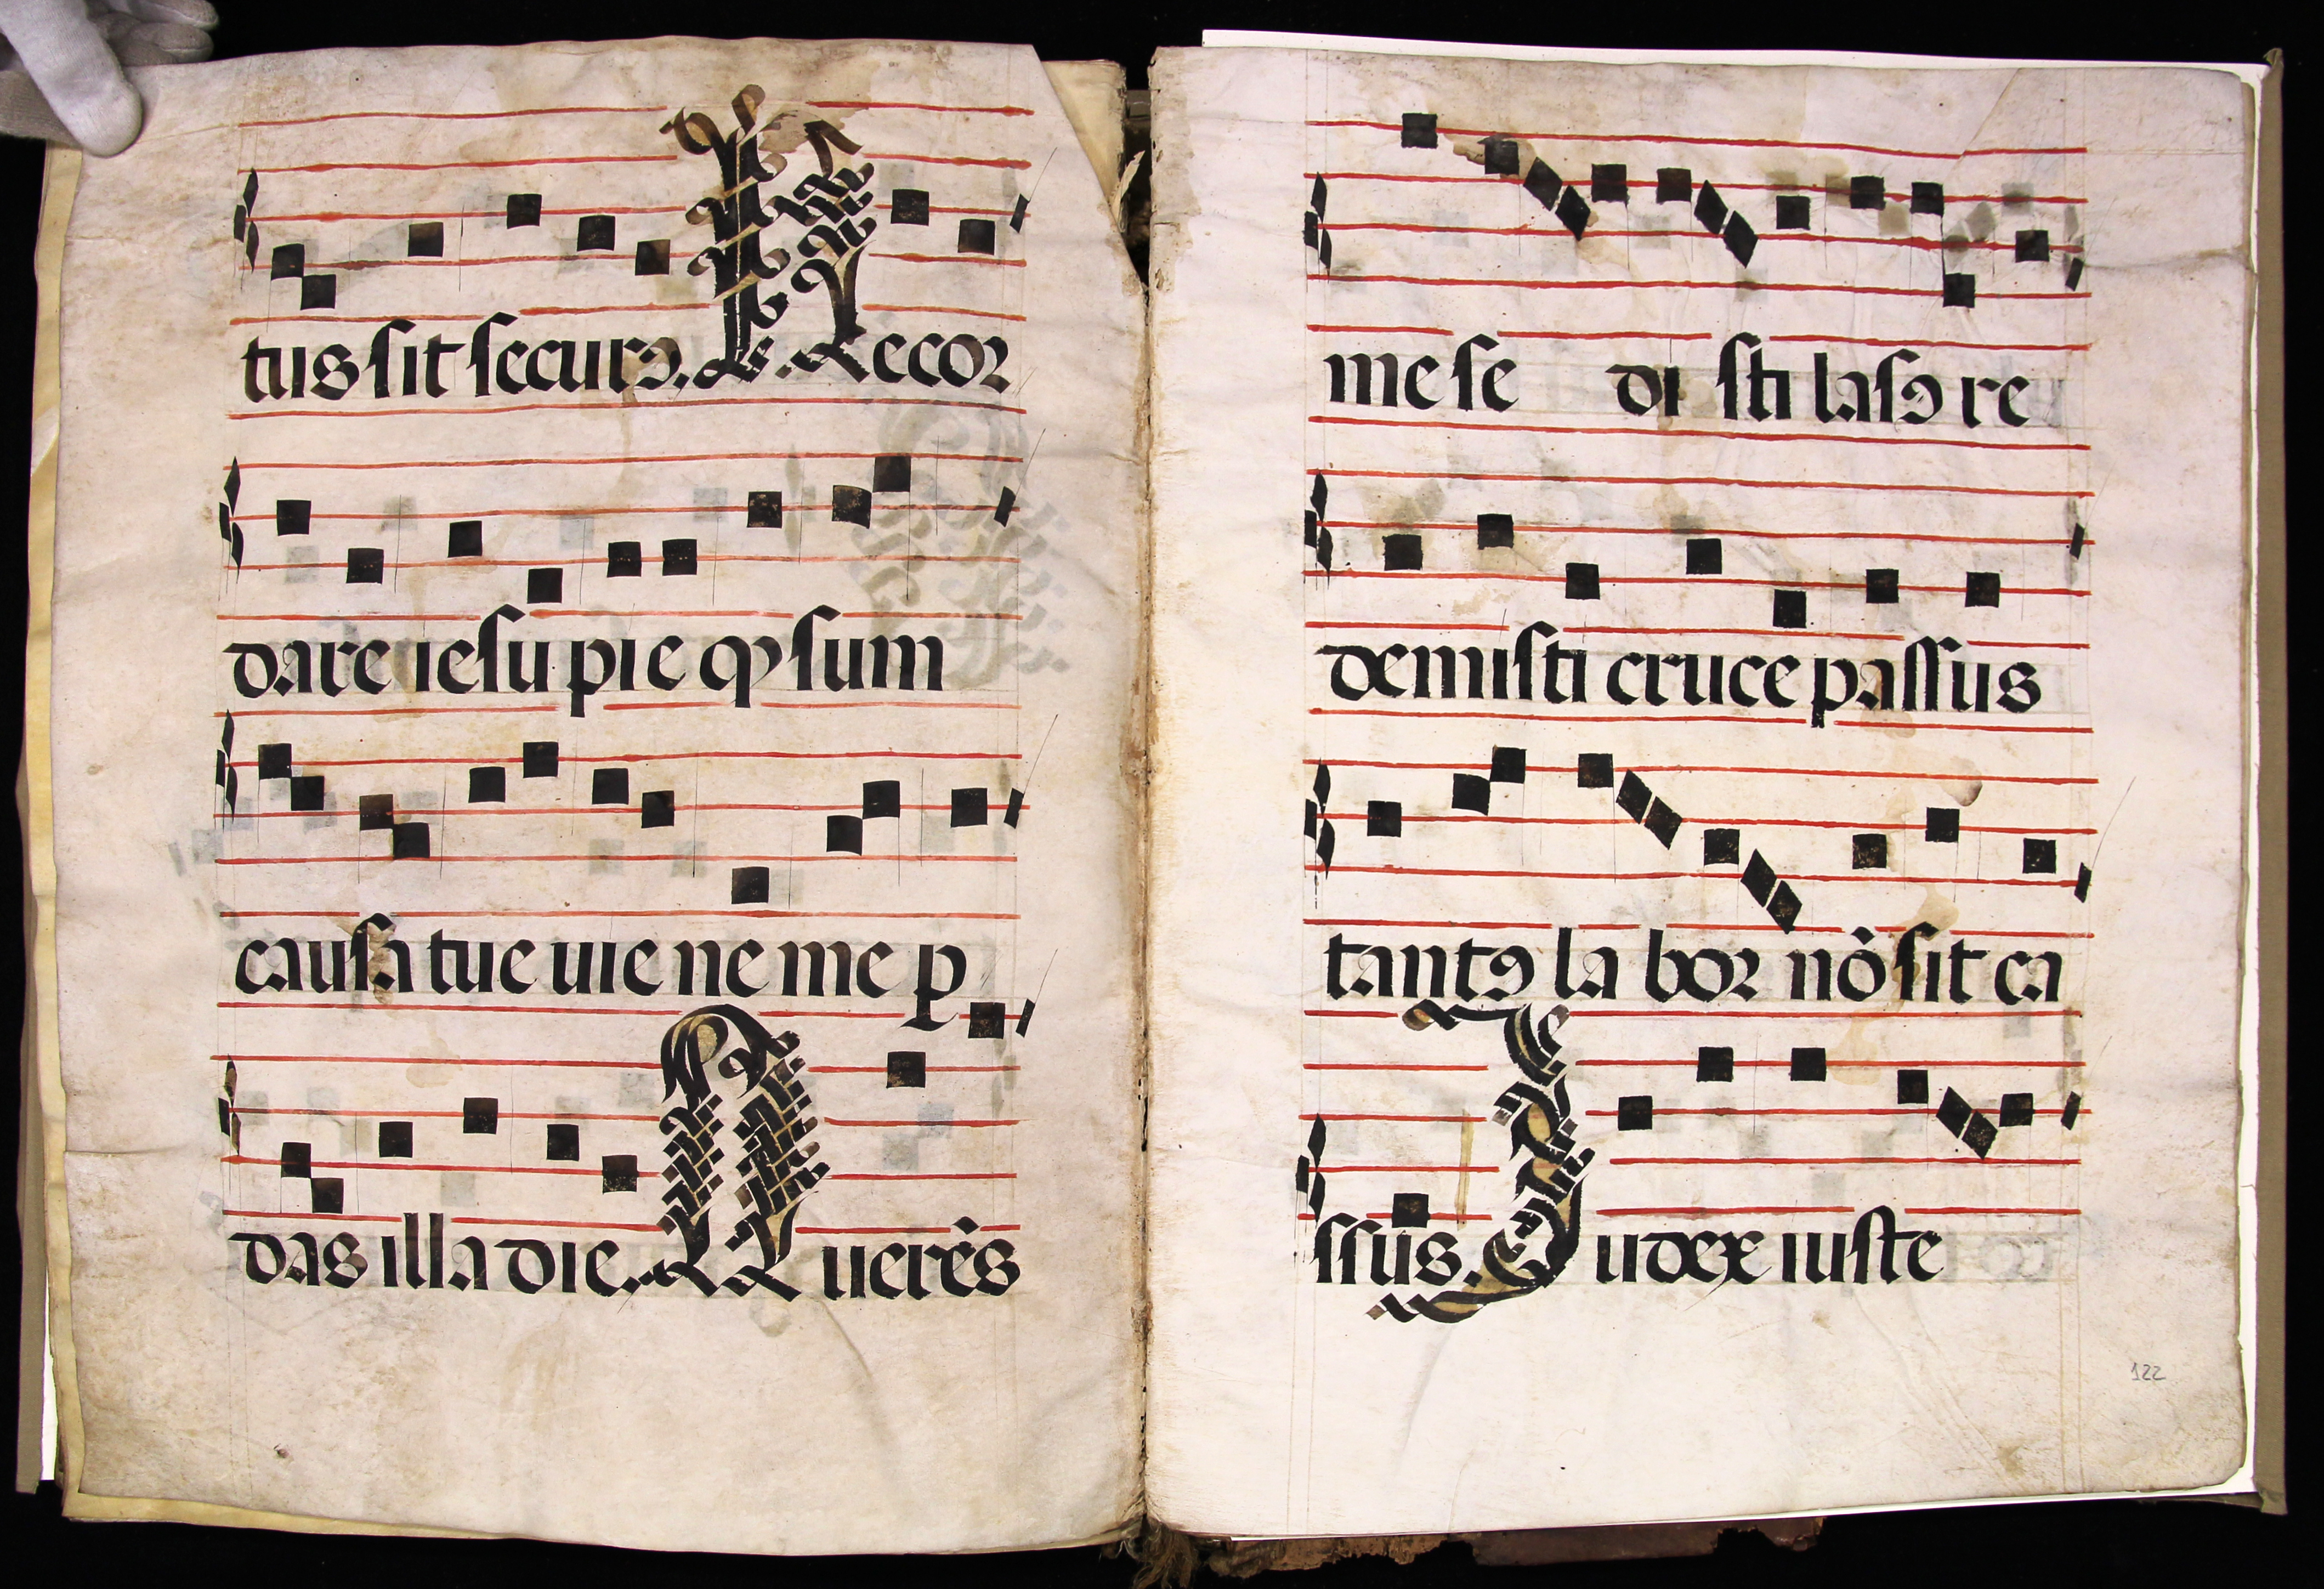 tus sit securꝯ. Recor
dare iesu pie qͥ sum
causa tue uie ne me ꝑ
das illa die. Querēs
me se di sti lasꝯ re
demisti cruce passus
tantꝯ la bor nō sit ca
ssus. Judex iuste
122